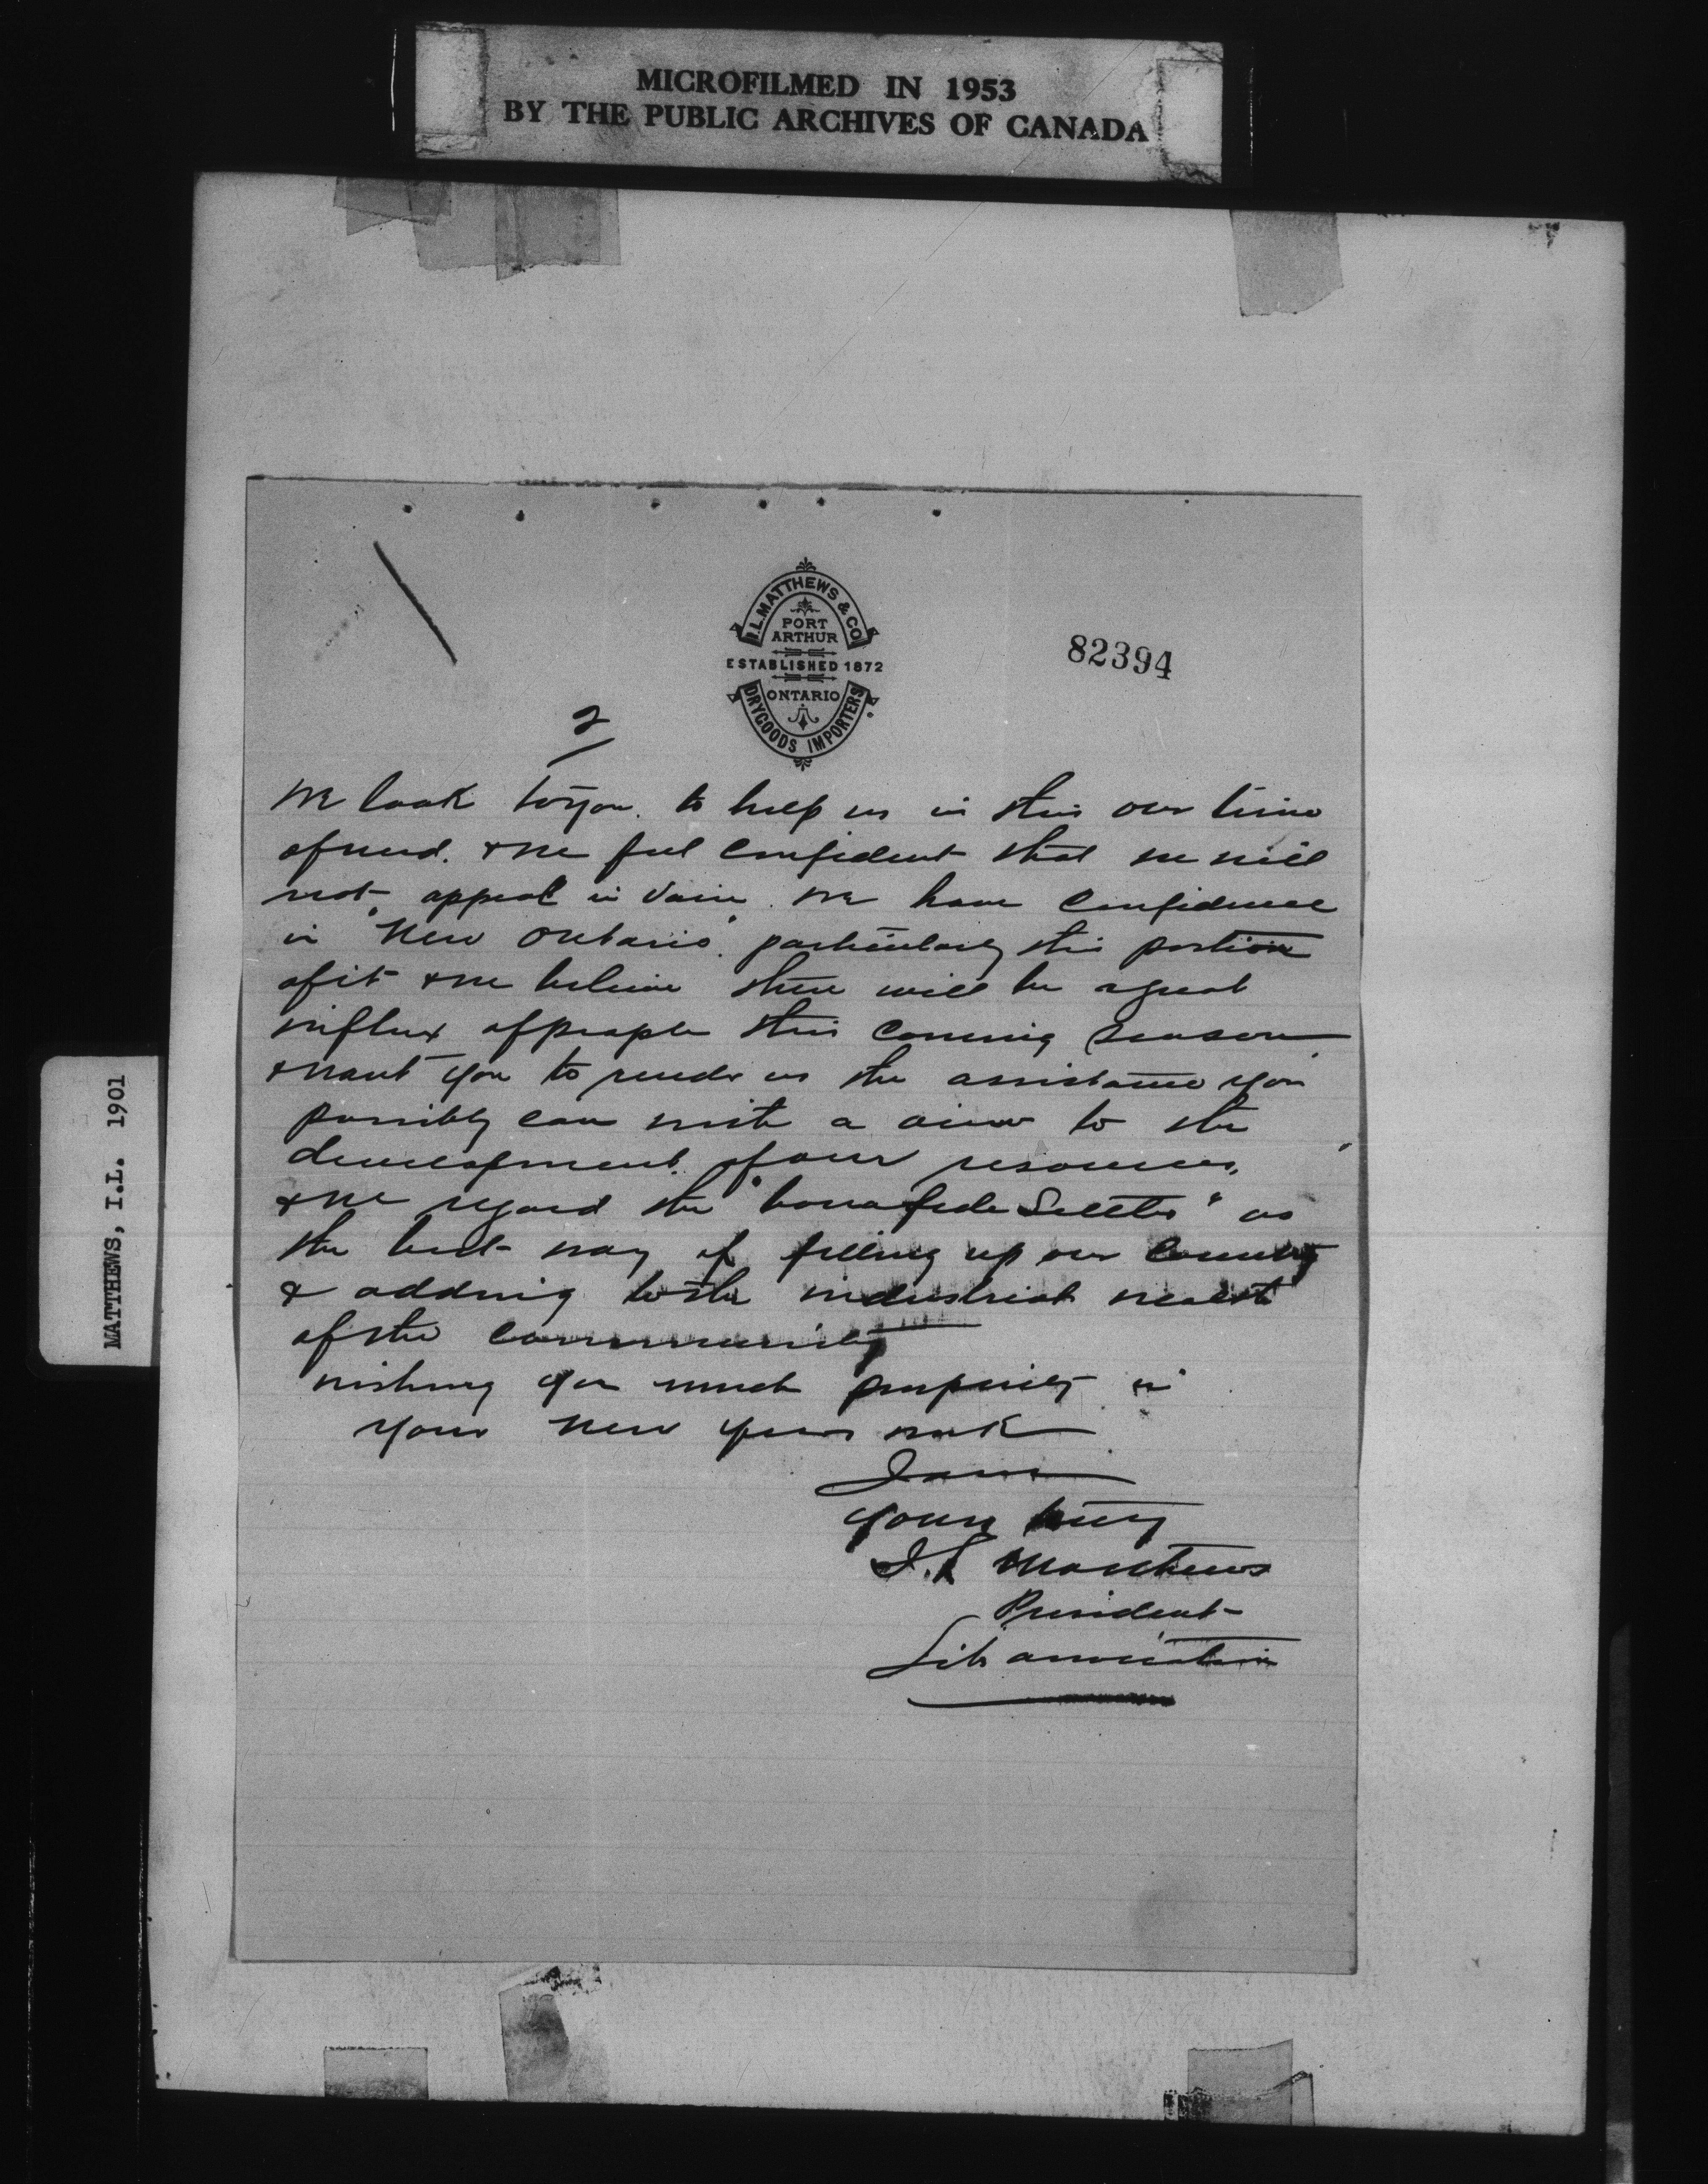 MICROFILMED IN 1953
BY THE PUBLIC ARCHIVES OF CANADA
MATTHEWS, I.L. 1901
I.L. MATTHEWS & CO
PORT
ARTHUR
ESTABLISHED 1872
ONTARIO
DRYGOODS IMPORTERS
82394
2
We look to you. to help us in this our time
of need. & we feel confident that we will
not appeal in vain. We have confidence
in "New Ontario". particularly this portion
of it & we believe there will be a great
influx of people this coming season
& want you to render us the assistance you
possibly can with a view to the
development of our resources.
& we regard the "bonafide Settler" as
the best way of filling up our Country
& adding to the industrial wealth
of the community
wishing you much prosperity in
your new years work
I am
yours truly
I. L Matthews
President
Lib association